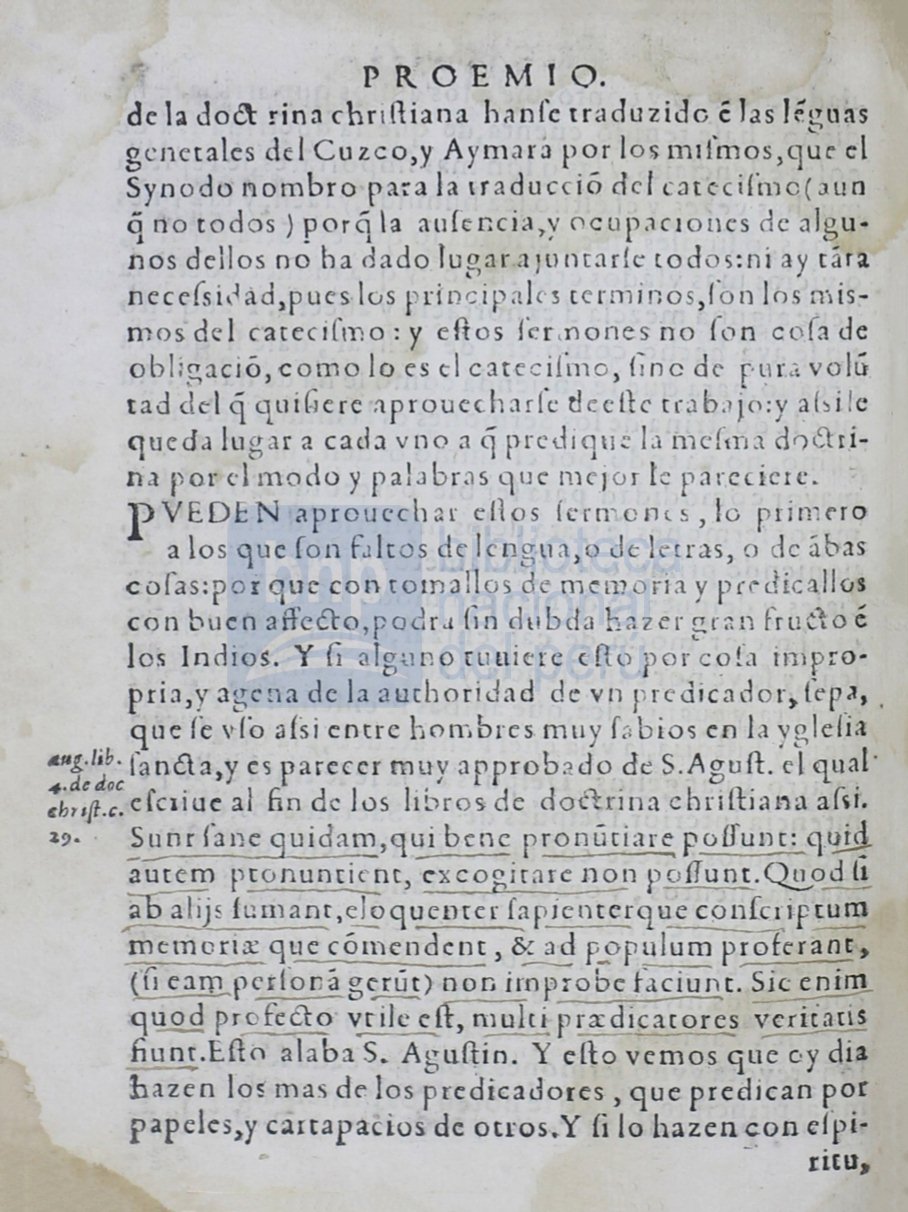 PROEMIO.
de la doct rina chriſtiana hanſe traduzido ẽ las lẽguas
generales del Cuzco,y Aymara por los miſmos,que el
Synodo nombro para la traducciõ del catecíſmo(aun
q̃ no todos ) porq̃ la auſencia,y ocupaciones de algu-
nos dellos no ha dado lugar ajuntarſe todos:ni ay tãta
neceſsidad,pues los principales terminos,ſon los miſ-
mos del catecíſmo : y eſtos ſermones no ſon coſa de
obligaciõ, como lo es el catecíſmo, ſino de pura volũ
tad del q̃ quiſiere aprouecharſe deeſte trabajo:y aſsi le
queda lugar a cada vno a q̃ predique la meſma doctri-
na por el modo y palabras que mejor le pareciere.
PVEDEN aprouechar eſtos ſermones , lo primero
a los que ſon faltos de lengua,o de letras, o de ãbas
coſas:por que con tomallos de memoria y predicallos
con buen affecto,podra ſin dubda hazer gran fructo ẽ
los Indios. Y ſi alguno tuuiere eſto por coſa impro-
pria,y agena de la authoridad de vn predicador, ſepa,
que ſe vſo aſsi entre hombres muy ſabios en la ygleſia
ſancta,y es parecer muy approbado de S.Aguſt. el qual
aug.lib.
4.de doc
chriſt.c.
29.
eſcriue al fin de los libros de doctrina chriſtiana aſsi.
Sunt ſane quidam,qui bene pronũtiare poſſunt: quid
autem pronuntient, excogitare non poſſunt.Quod ſi
ab alijs ſumant,eloquenter ſapienterque conſcriptum
memoriæ que cõmendent , & ad populum proferant,
(ſi eam perſonã gerũt) non improbe faciunt. Sic enim
quod profecto vtile eſt, multi prædicatores veritatis
fiunt.Eſto alaba S. Aguſtin. Y eſto vemos que oy dia
hazen los mas de los predicadores , que predican por
papeles,y cartapacios de otros.Y ſi lo hazen con eſpi-
ritu,
biblioteca
nacional
del perú
bnp